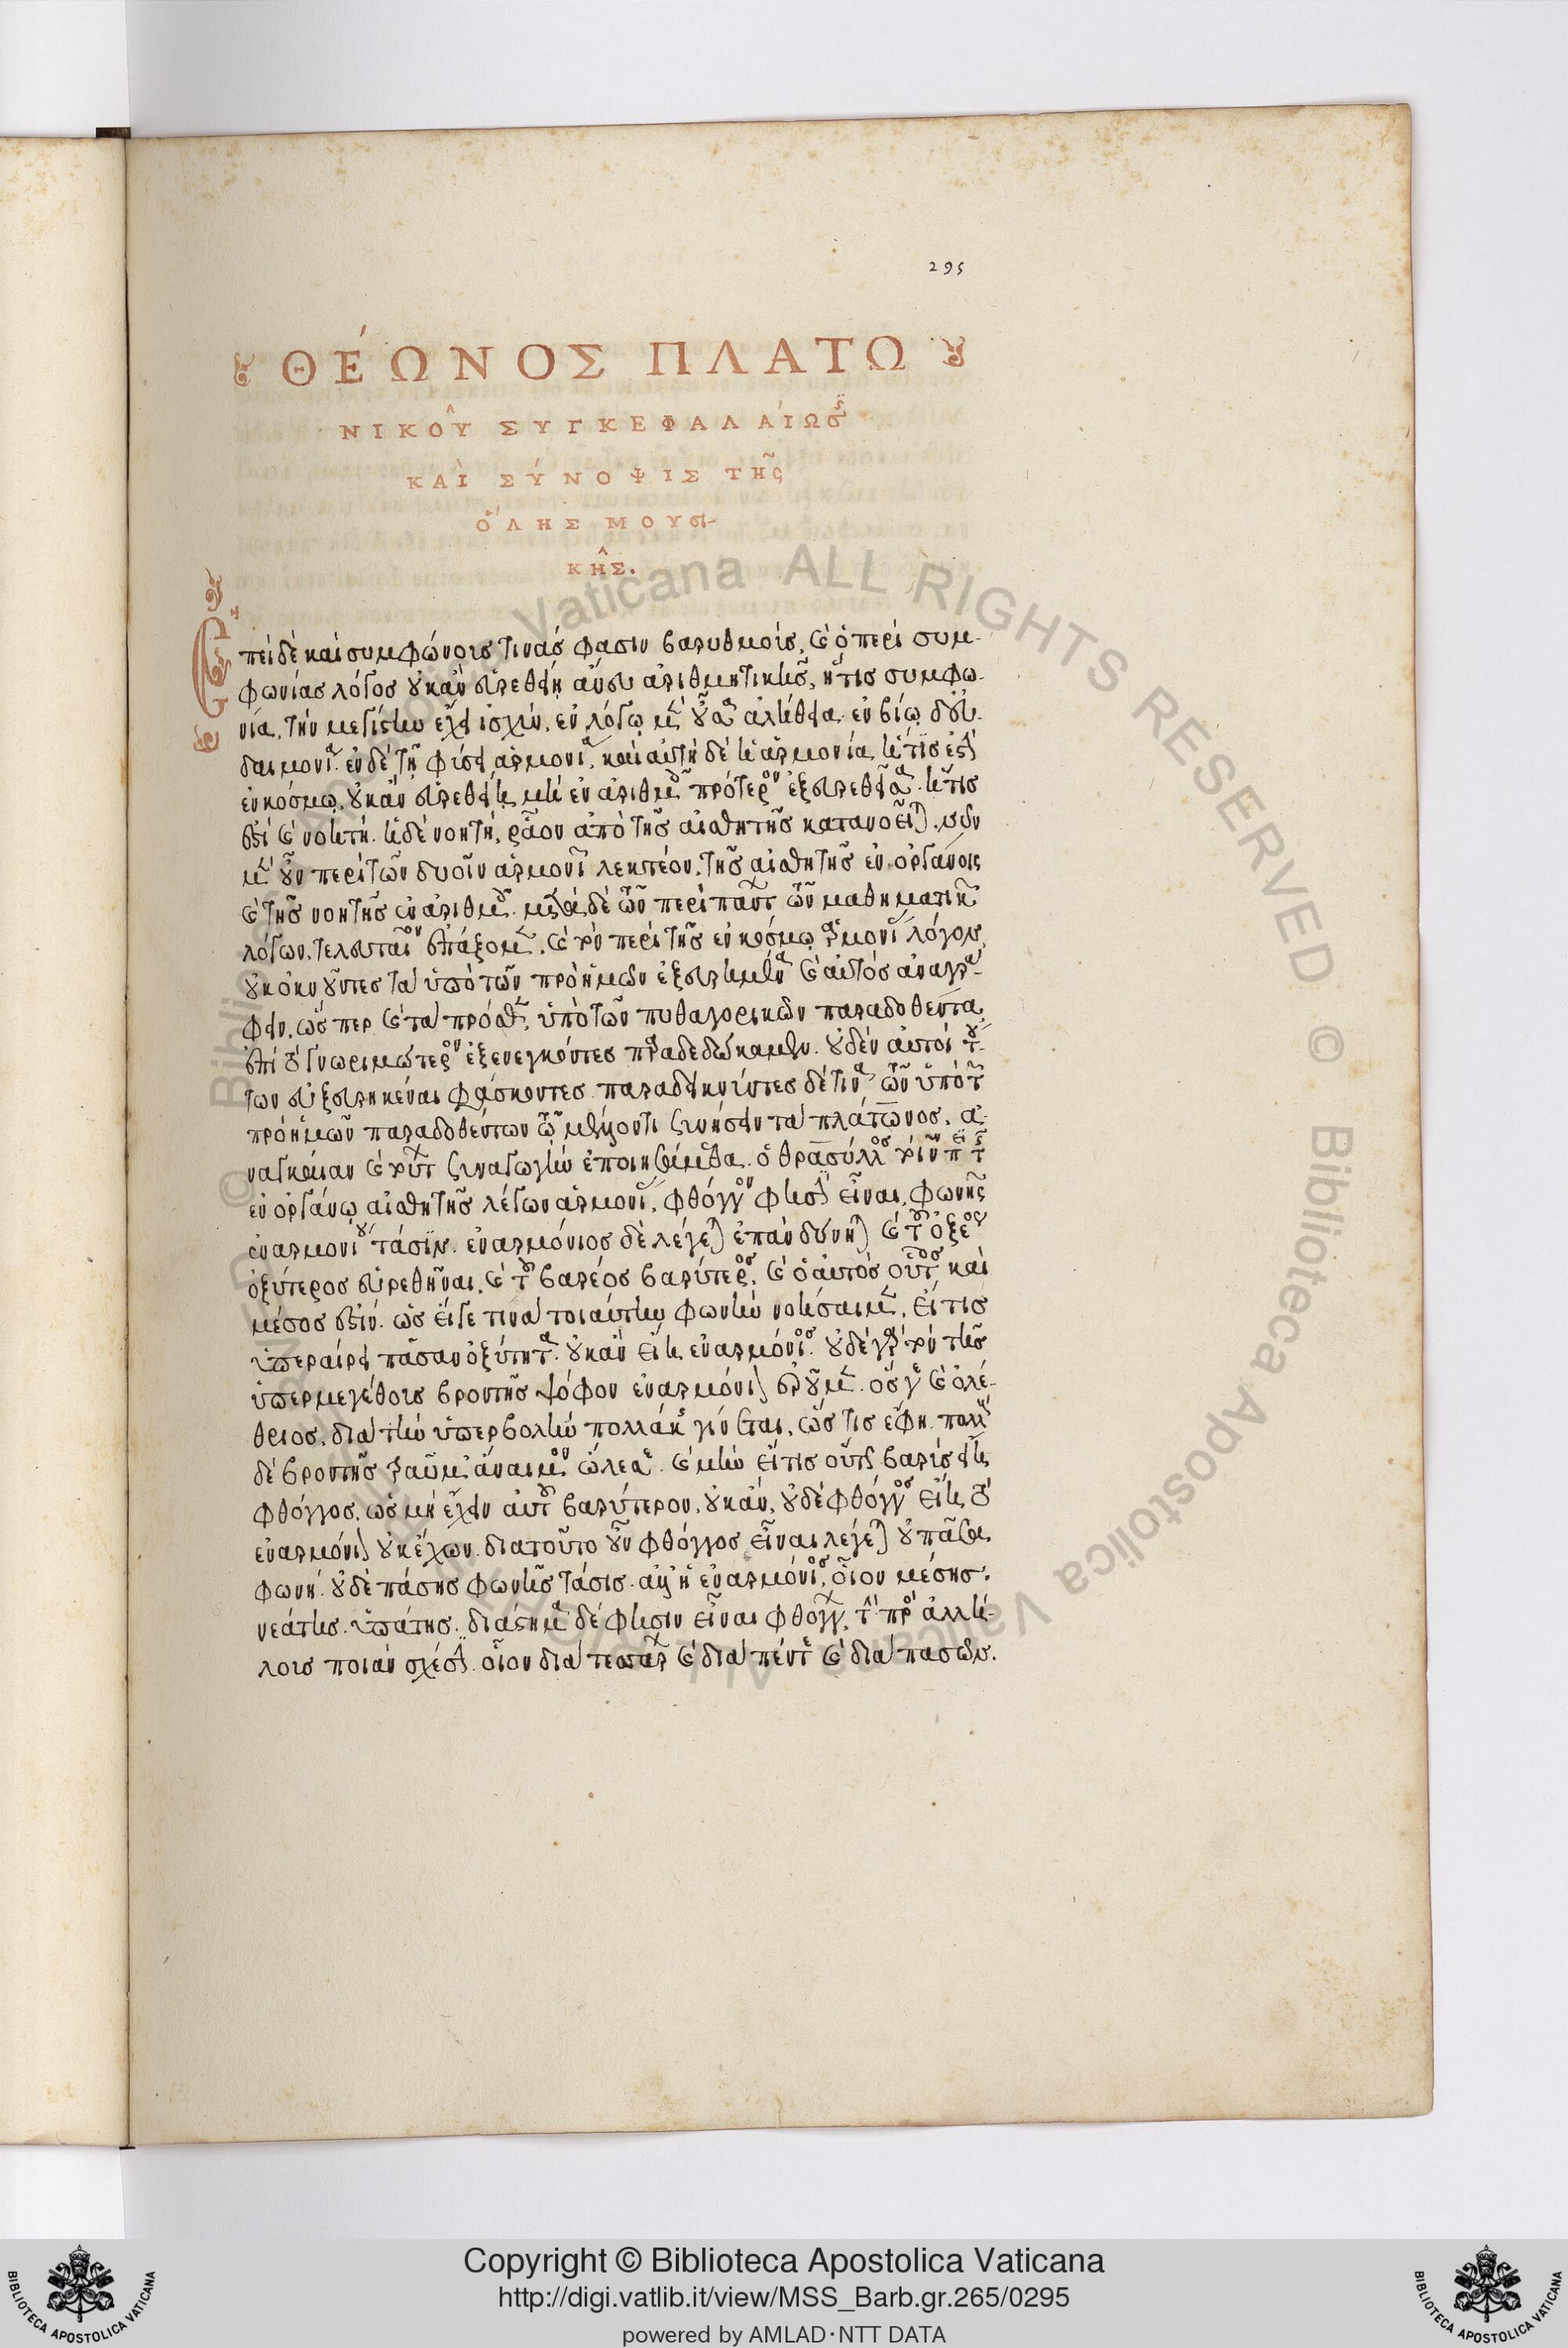 295
ΘΈΩΝΟΣ ΠΛΑΤΩ
ΝΙΚΟΥ͂ ΣΥΓΚΕΦΑΛΑΊΩσς
ΚΑῚ ΣΎΝΟΨΙΣ ΤΗ͂ς
ὍΛΗΣ ΜΟΥσι-
ΚΗ͂Σ.
πεὶ δὲ καὶ συμφώνους τινάς φασιν ἀριθμοὺς, καὶ ὁ περὶ συμ-
φωνίας λόγος οὐκ ἂν εὑρεθείη ἄνευ ἀριθμητικῆς, ἥτις συμφω-
νία, τὴν μεγίστην ἔχει ἰσχὺν, ἐν λόγῳ μὲν οὖσα ἀλήθεια. ἐν βίῳ δ' εὐ-
δαιμονία. ἐν δὲ τῇ φύσει ἁρμονία, καὶ αὐτὴ δὲ ἡ ἁρμονία, ἥτις ἐστὶ
ἐν κόσμῳ, οὐκ ἂν εὑρεθείη μὴ ἐν ἀριθμοῖς πρότερον ἐξευρεθεῖσα. ἥτις
ἐστὶ καὶ νοητή. ἡ δὲ νοητή, ῥᾶον ἀπὸ τῆς αἰσθητῆς κατανοεῖται. νῦν
μὲν οὖν περὶ τῶν δυοῖν ἁρμονιῶν λεκτέον, τῆς αἰσθητῆς ἐν ὀργάνοις
καὶ τῆς νοητῆς ἐν ἀριθμοῖς. μετὰ δὲ τῶν περὶ πάντων τῶν μαθηματικῶν
λόγων, τελευταῖον ἐπάξομεν, καὶ τὸν περὶ τῆς ἐν κόσμῳ ἁρμονίας λόγον,
οὐκ ὀκνοῦντες τὰ ὑπὸ τῶν πρὸ ἡμῶν ἐξευρημένα καὶ αὐτὸς ἀναγρά-
φειν, ὥσπερ καὶ τὰ πρόσθεν, ὑπὸ τῶν πυθαγορικῶν παραδοθέντα,
ἐπὶ τὸ γνωριμώτερον ἐξενεγκόντες παραδεδώκαμεν. οὐδὲν αὐτοὶ τού-
των ἐξευρηκέναι φάσκοντες. παραδεικνύντες δέ τινα τῶν ὑπὸ τῶν
πρὸ ἡμῶν παραδοθέντων τῷ μέλλοντι συνήσειν τὰ πλάτωνος. ἀ-
ναγκαίαν καὶ τούτων συναγωγὴν ἐποιησάμεθα. ὁ θράσυλλος τοίνυν περὶ τῆς
ἐν ὀργάνῳ αἰσθητῆς λέγων ἁρμονίας, φθόγγον φησὶ εἶναι, φωνῆς
ἐναρμονίου τάσιν. ἐναρμόνιος δὲ λέγεται ἐπὰν δύνηται καὶ τοῦ ὀξέος
ὀξύτερος εὑρεθῆναι, καὶ τοῦ βαρέος βαρύτερος, καὶ ὁ αὐτὸς οὗτος καὶ
μέσος ἐστίν. ὡς εἴγε τινὰ τοιαύτην φωνὴν νοήσαιμεν, εἴ τις
ὑπεραίρει πᾶσαν ὀξύτητα. οὐκ ἂν εἴη ἐναρμόνιος. οὐδὲ γὰρ τὸν τῆς
ὑπερμεγέθους βροντῆς ψόφον ἐναρμόνιον ἐροῦμεν. ὅς γε καὶ ὀλέ-
θριος, διὰ τὴν ὑπερβολὴν πολλάκις γίνεται, ὥς τις ἔφη. πολλοὺς
δὲ βροντῆς τραῦμ' ἄναιμον ὤλεσε. καὶ μὴν εἴ τις οὕτως βαρὺς εἴη
φθόγγος, ὡς μὴ ἔχειν αὐτοῦ βαρύτερον, οὐκ ἂν, οὐδὲ φθόγγος εἴη, τὸ
ἐναρμόνιον οὐκ ἔχων. διὰ τοῦτο οὖν φθόγγος εἶναι λέγεται οὐ πᾶσα
φωνή. οὐδὲ πάσης φωνῆς τάσις. ἀλλ' ἡ ἐναρμόνιος, οἷον μέσης.
νεάτης. ὑπάτης. διάστημα δέ φησιν εἶναι φθόγγων, τὴν πρὸς ἀλλή-
λους ποιὰν σχέσιν. οἷον διὰ τεσσάρων καὶ διὰ πέντε καὶ διὰ πασῶν.
© Biblioteca Apostolica Vaticana ALL RIGHTS RESERVED © Biblioteca Apostolica Vaticana
Copyright © Biblioteca Apostolica Vaticana
http://digi.vatlib.it/view/MSS_Barb.gr.265/0295
powered by AMLAD·NTT DATA
BIBLIOTECA APOSTOLICA VATICANA
BIBLIOTECA APOSTOLICA VATICANA